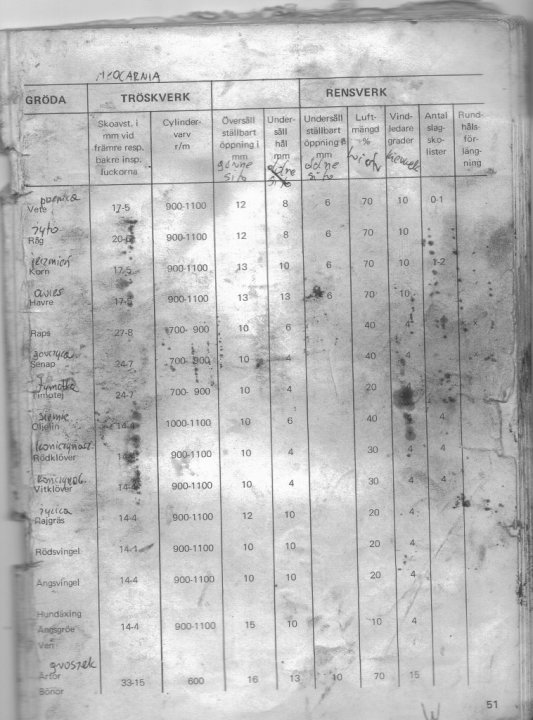 MŁOCARNIA
GRÖDA TRÖSKVERK RENSVERK
Skoavst. i mm vid främre resp. bakre insp. luckorna
Cylinder-varv r/m
Översåll ställbart öppning i mm górne sito
Under-såll hål mm dolne sito
Undersåll ställbart öppning mm dolne sito
Luft-mängd % wiatr
Vind-ledare grader
Antal slag-sko-lister
Rund-håls-för-läng-ning
pszenica
Vete 17-5 900-1100 12 8 6 70 10 0-1
żyto
Råg 900-1100 12 8 6 70 10
jęczmień
Korn 17-5 900-1100 13 10 6 70 10 1-2
owies
Havre 900-1100 13 13 6 70 10
Raps 27-8 700- 900 10 6 40 4
gorczyca
Senap 24-7 700- 900 10 4 40 4
tymotka
Timotej 24-7 700- 900 10 4 20
siemie
Oljelin 14-4 1000-1100 10 6 40 4 4
Rödklöver 900-1100 10 4 30 4 4
Vitklöver 900-1100 10 4 30 4 4
życica
Rajgräs 14-4 900-1100 12 10 20 4
Rödsvingel 14-4 900-1100 10 10 20 4
Ängsvingel 14-4 900-1100 10 10 20 4
Hundäxing
Ängsgröe 14-4 900-1100 15 10 10 4
groszek
Ärtor 33-15 600 16 13 10 70 15
Bönor
51